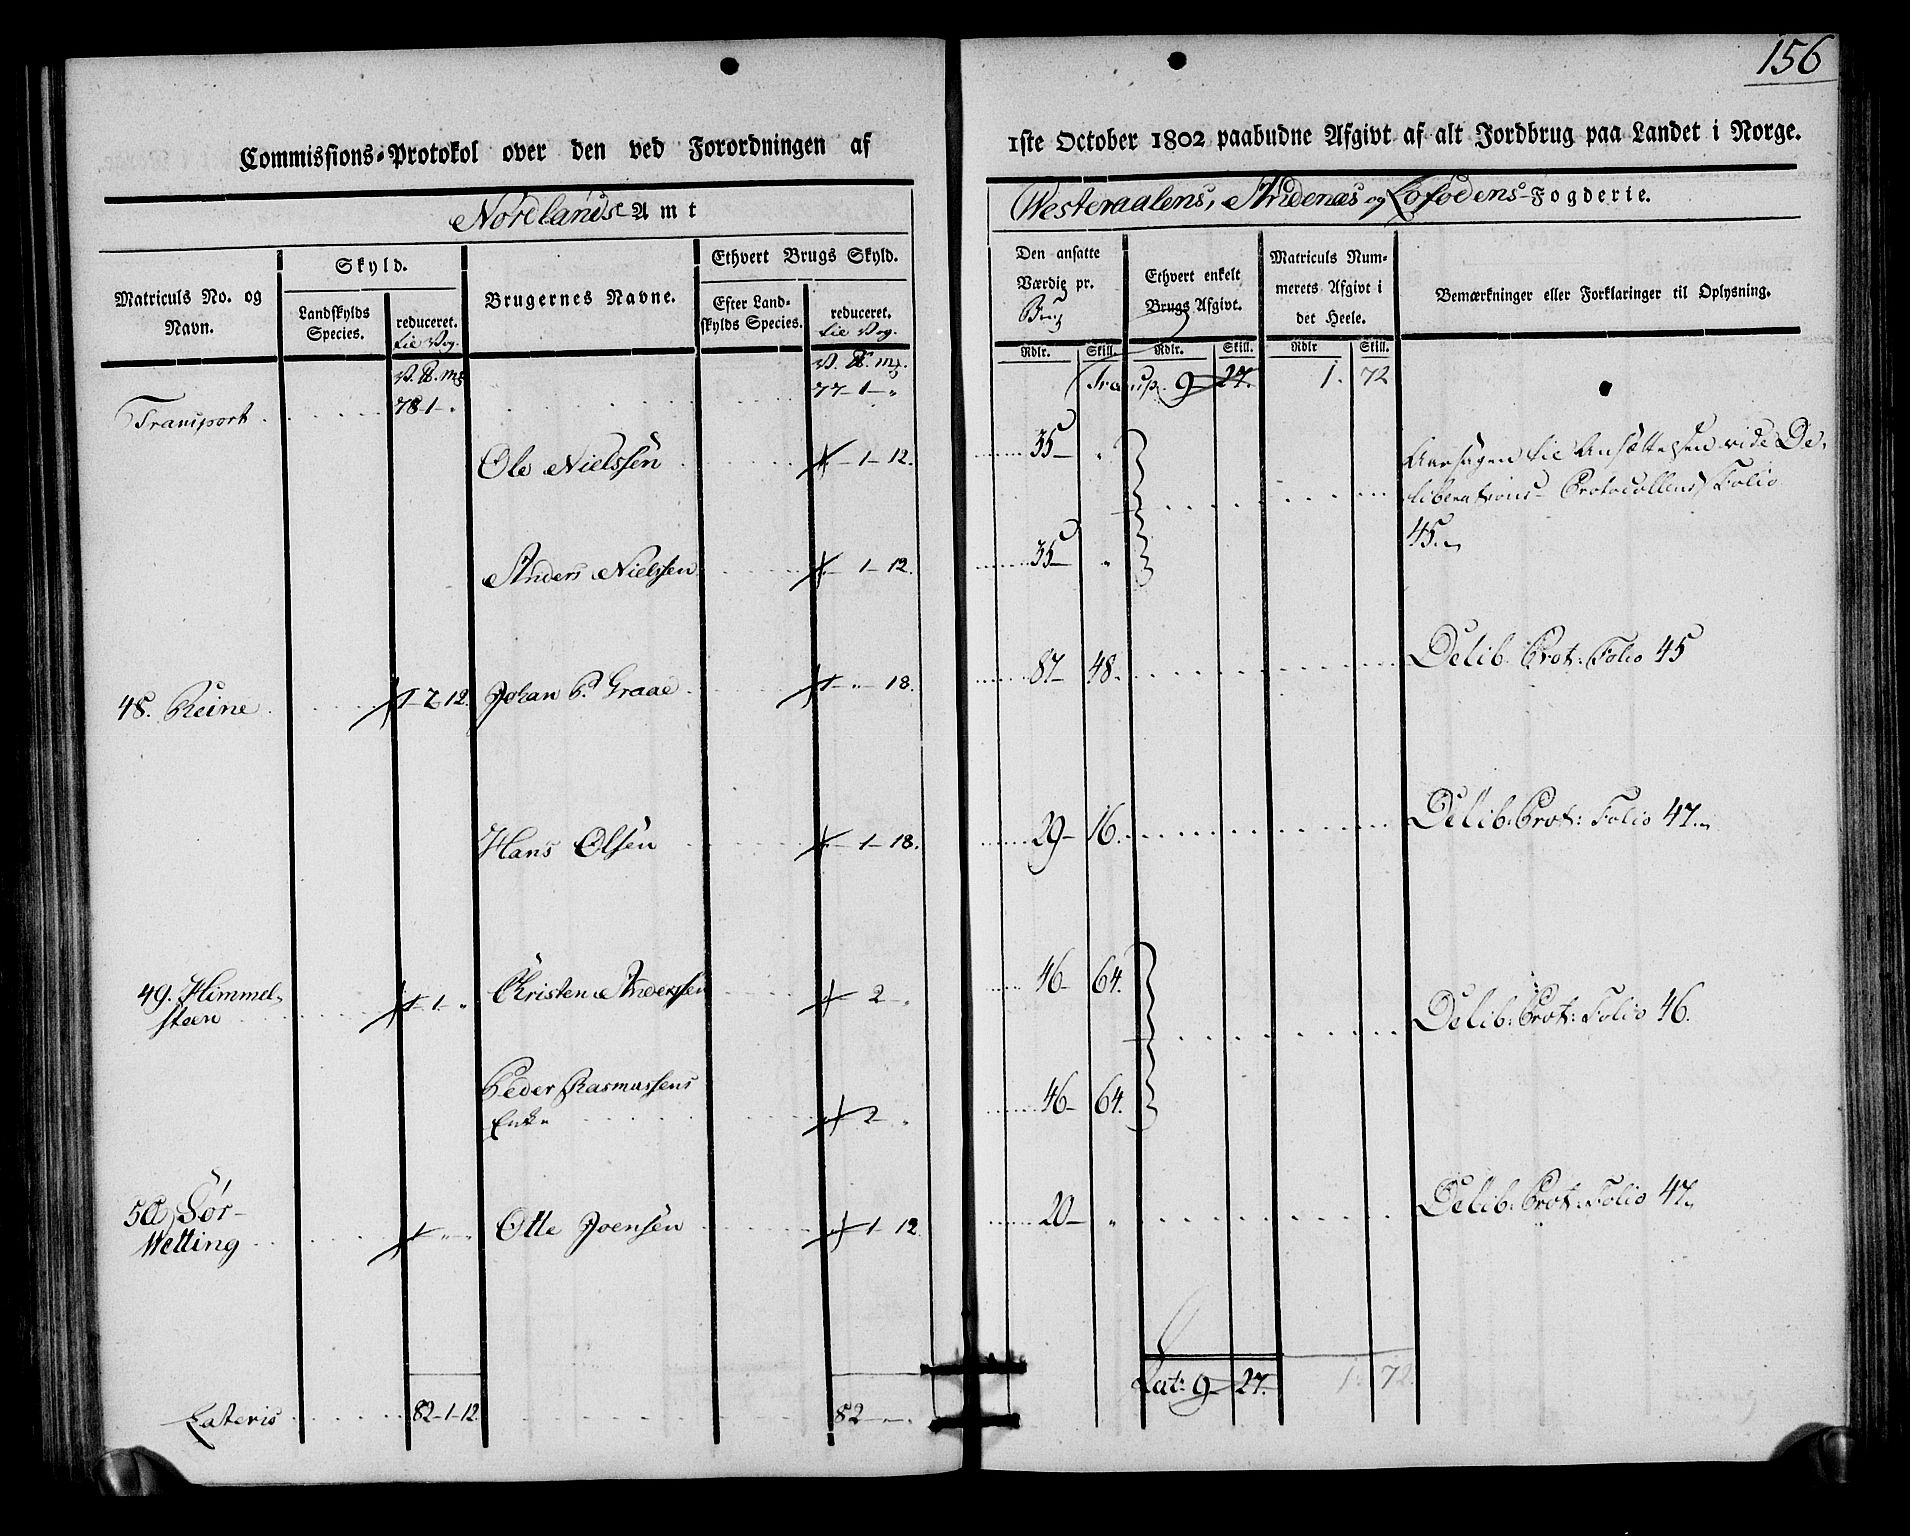 156
Commissions-Protokol over den ved Forordningen af 1ste October 1802 paabudne Afgivt af alt Jordbrug paa Landet i Norge.
Nordlands Amt
Westeraalens, Andenæs og Lofodens-Fogderie.
Matriculs No. og Navn.
Skyld.
Landskylds Species.
reduceret. til Vog.
Brugernes Navne.
Ethvert Brugs Skyld.
Efter Landskylds Species.
reduceret. til Vog.
Den ansatte Værdie pr. Brug
Ethvert enkelt Brugs Afgivt.
Matriculs Nummerets Afgivt i det Heele.
Bemærkninger eller Forklaringer til Oplysning.
Rdlr. Skill. Rdlr. Skill. Rdlr Skill.
V. ℔. mƷ V. ℔. mƷ.
Transport 78-1-" 77-1-" Transp. 9-27. 1. 72
Ole Nielssen -1-12. 35- "
Aarsagen til Ansættelsen vide De-
liberations-Protocollens Folio
45.
Anders Nielssen -1-12. 35- "
48. Reine 1-2-12. Johan P. Graae 1-"-18. 87- 48. Delib. Prot: Folio 45
Hans Olsen -1-18. 29- 16. Delib. Prot: Folio 47.
49. Himmel-
steen 1-1-" Christen Anderssen -2-" 46- 64. Delib. Prot: Folio 46.
Peder Rasmussens
Enke -2-" 46- 64.
50 Sør-
Wetting 1-"-" Otte Joensen -1-12 20- " Delib. Prot: Folio 47.
Lateris 82-1-12. 82-"-" Lat: 9- 27. 1. 72.